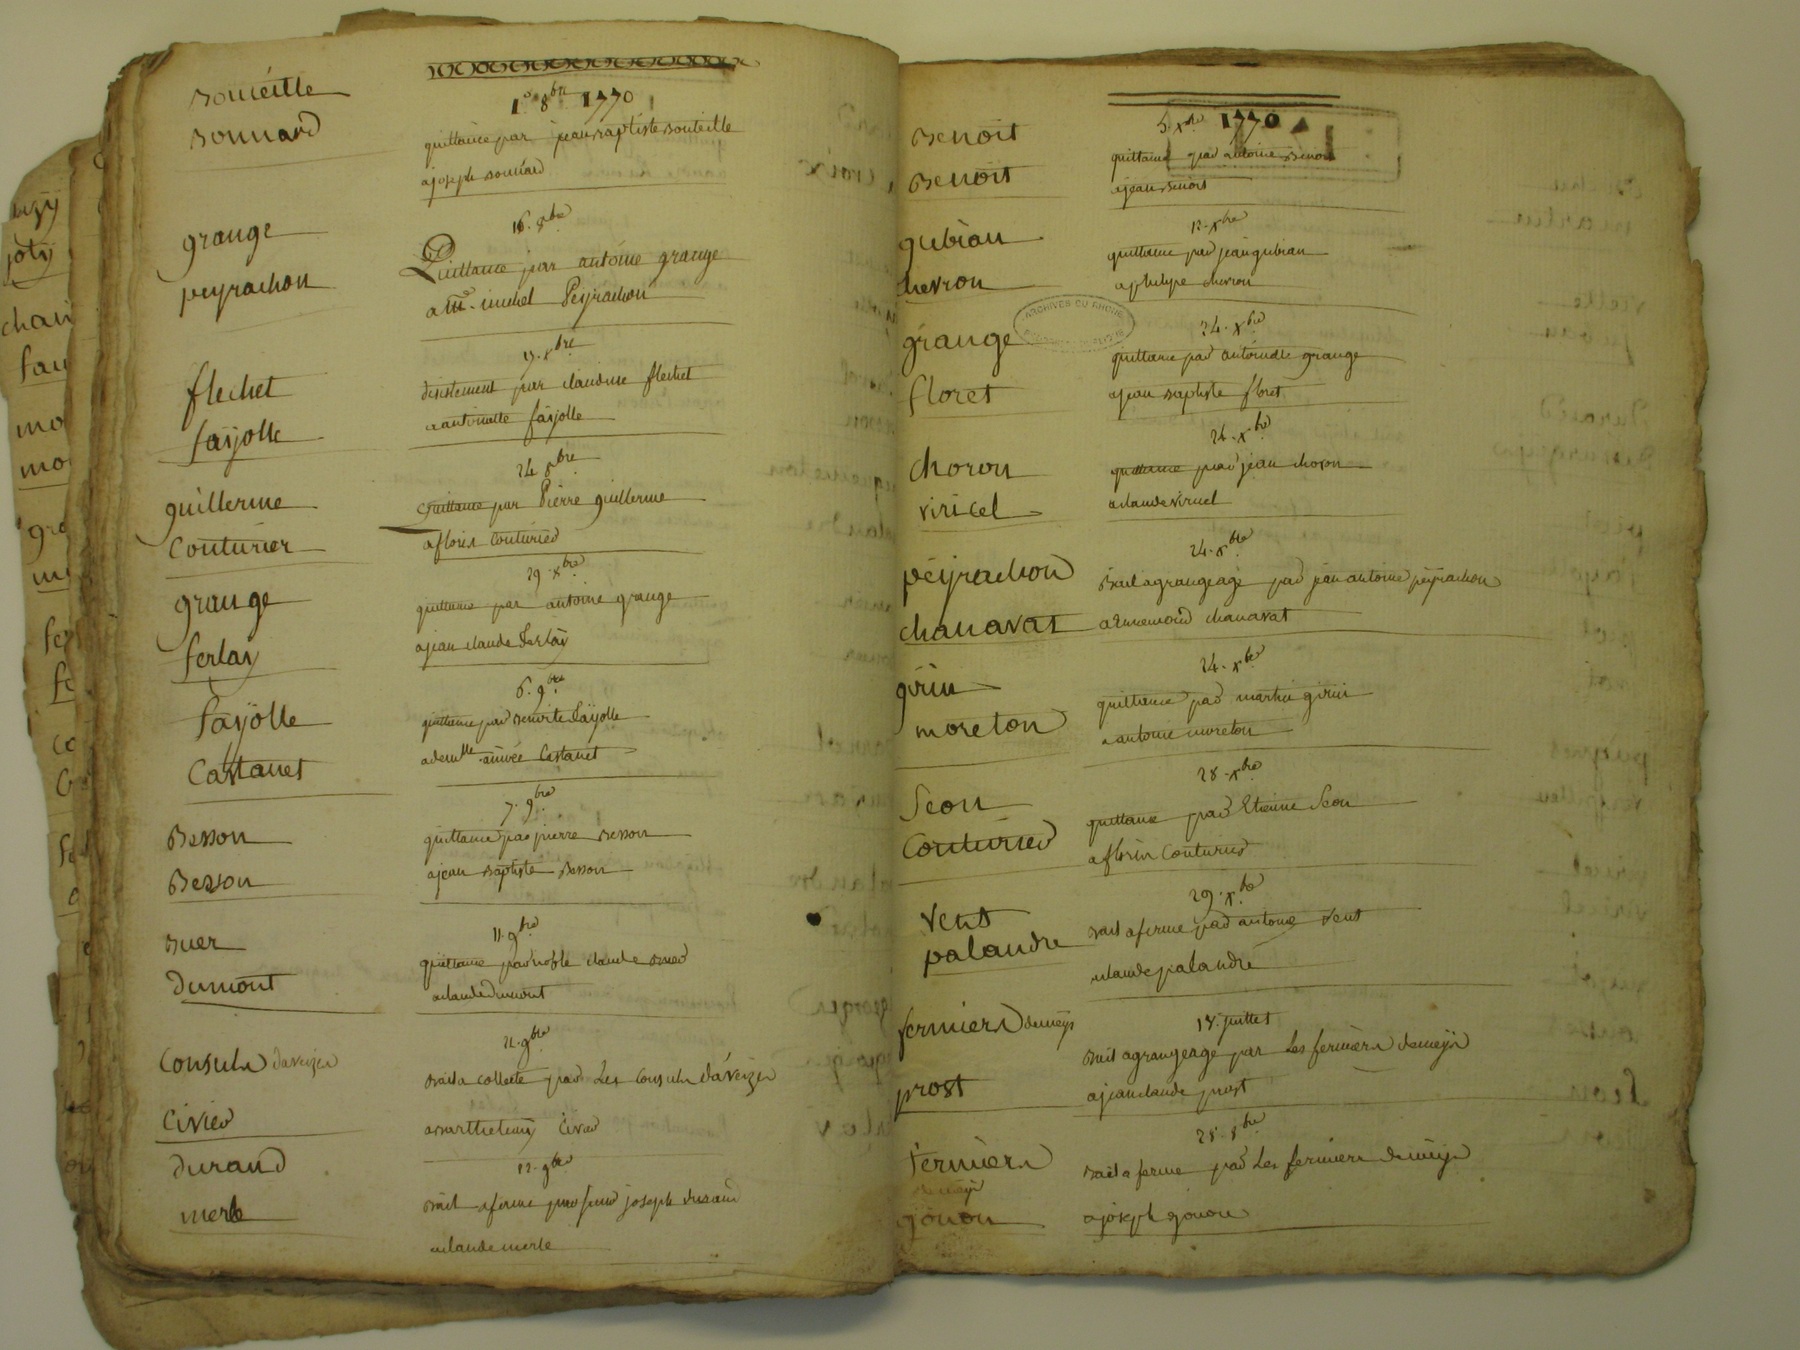 Bouteille
Bonnard
1º 8bre 1770
quittance par jean Baptiste Bouteille
a joseph Bonnard
grange
peyrachon
16. 8bre
Quittance par antoine grange
a Me. michel Peyrachon
flechet
fayolle
19. 8bre
desistement par claudine flechet
a antoinette fayolle
guillerme
Couturier
24 8bre
Quittance par Pierre guillerme
a floris Couturier
grange
ferlay
29. 8bre
quittance par antoine grange
a jean claude ferlay
fayolle
Castanet
6. 9bre
quittance par Benoite fayolle
a demlle aimée Castanet
Besson
Besson
7. 9bre
quittance par pierre Besson
a jean Baptiste Besson
Buer
Dumont
11. 9bre
quittance par noble claude Buer
a claude Dumont
Consuls d'aveizes
Civier
11. 9bre
Bail a collecte par Les Consuls d'aveizes
a Barthelemy Civier
Durand
merle
12. 9bre
Bail a ferme par sieur joseph Durand
a claude merle
Benoit
Benoit
5. xbre 1770
quittance par antoine Benoit
a jean Benoit
gubian
chevron
12. xbre
quittance par jean gubian
a philipe chevron
ARCHIVES DU RHÔNE
grange
floret
24. xbre
quittance par antoine grange
a jean Baptiste floret
choron
viricel
24. xbre
quittance par jean choron
a claude viricel
peyrachon
chanavat
24. xbre
Bail a grangeage par jean antoine peyrachon
a Annemond chanavat
girin
moreton
24. xbre
quittance par martin girin
a antoine moreton
Seon
Couturier
28. xbre
quittance par Etienne Seon
a floris Couturier
Vent
palandre
29. xbre
Bail a ferme par antoine Vent
a claude palandre
fermiers de meys
prost
18. juillet
Bail a grangeage par Les fermiers de meys
a jean claude prost
fermiers
de meys
gonon
28. 8bre
Bail a ferme par Les fermiers de meys
a joseph gonon